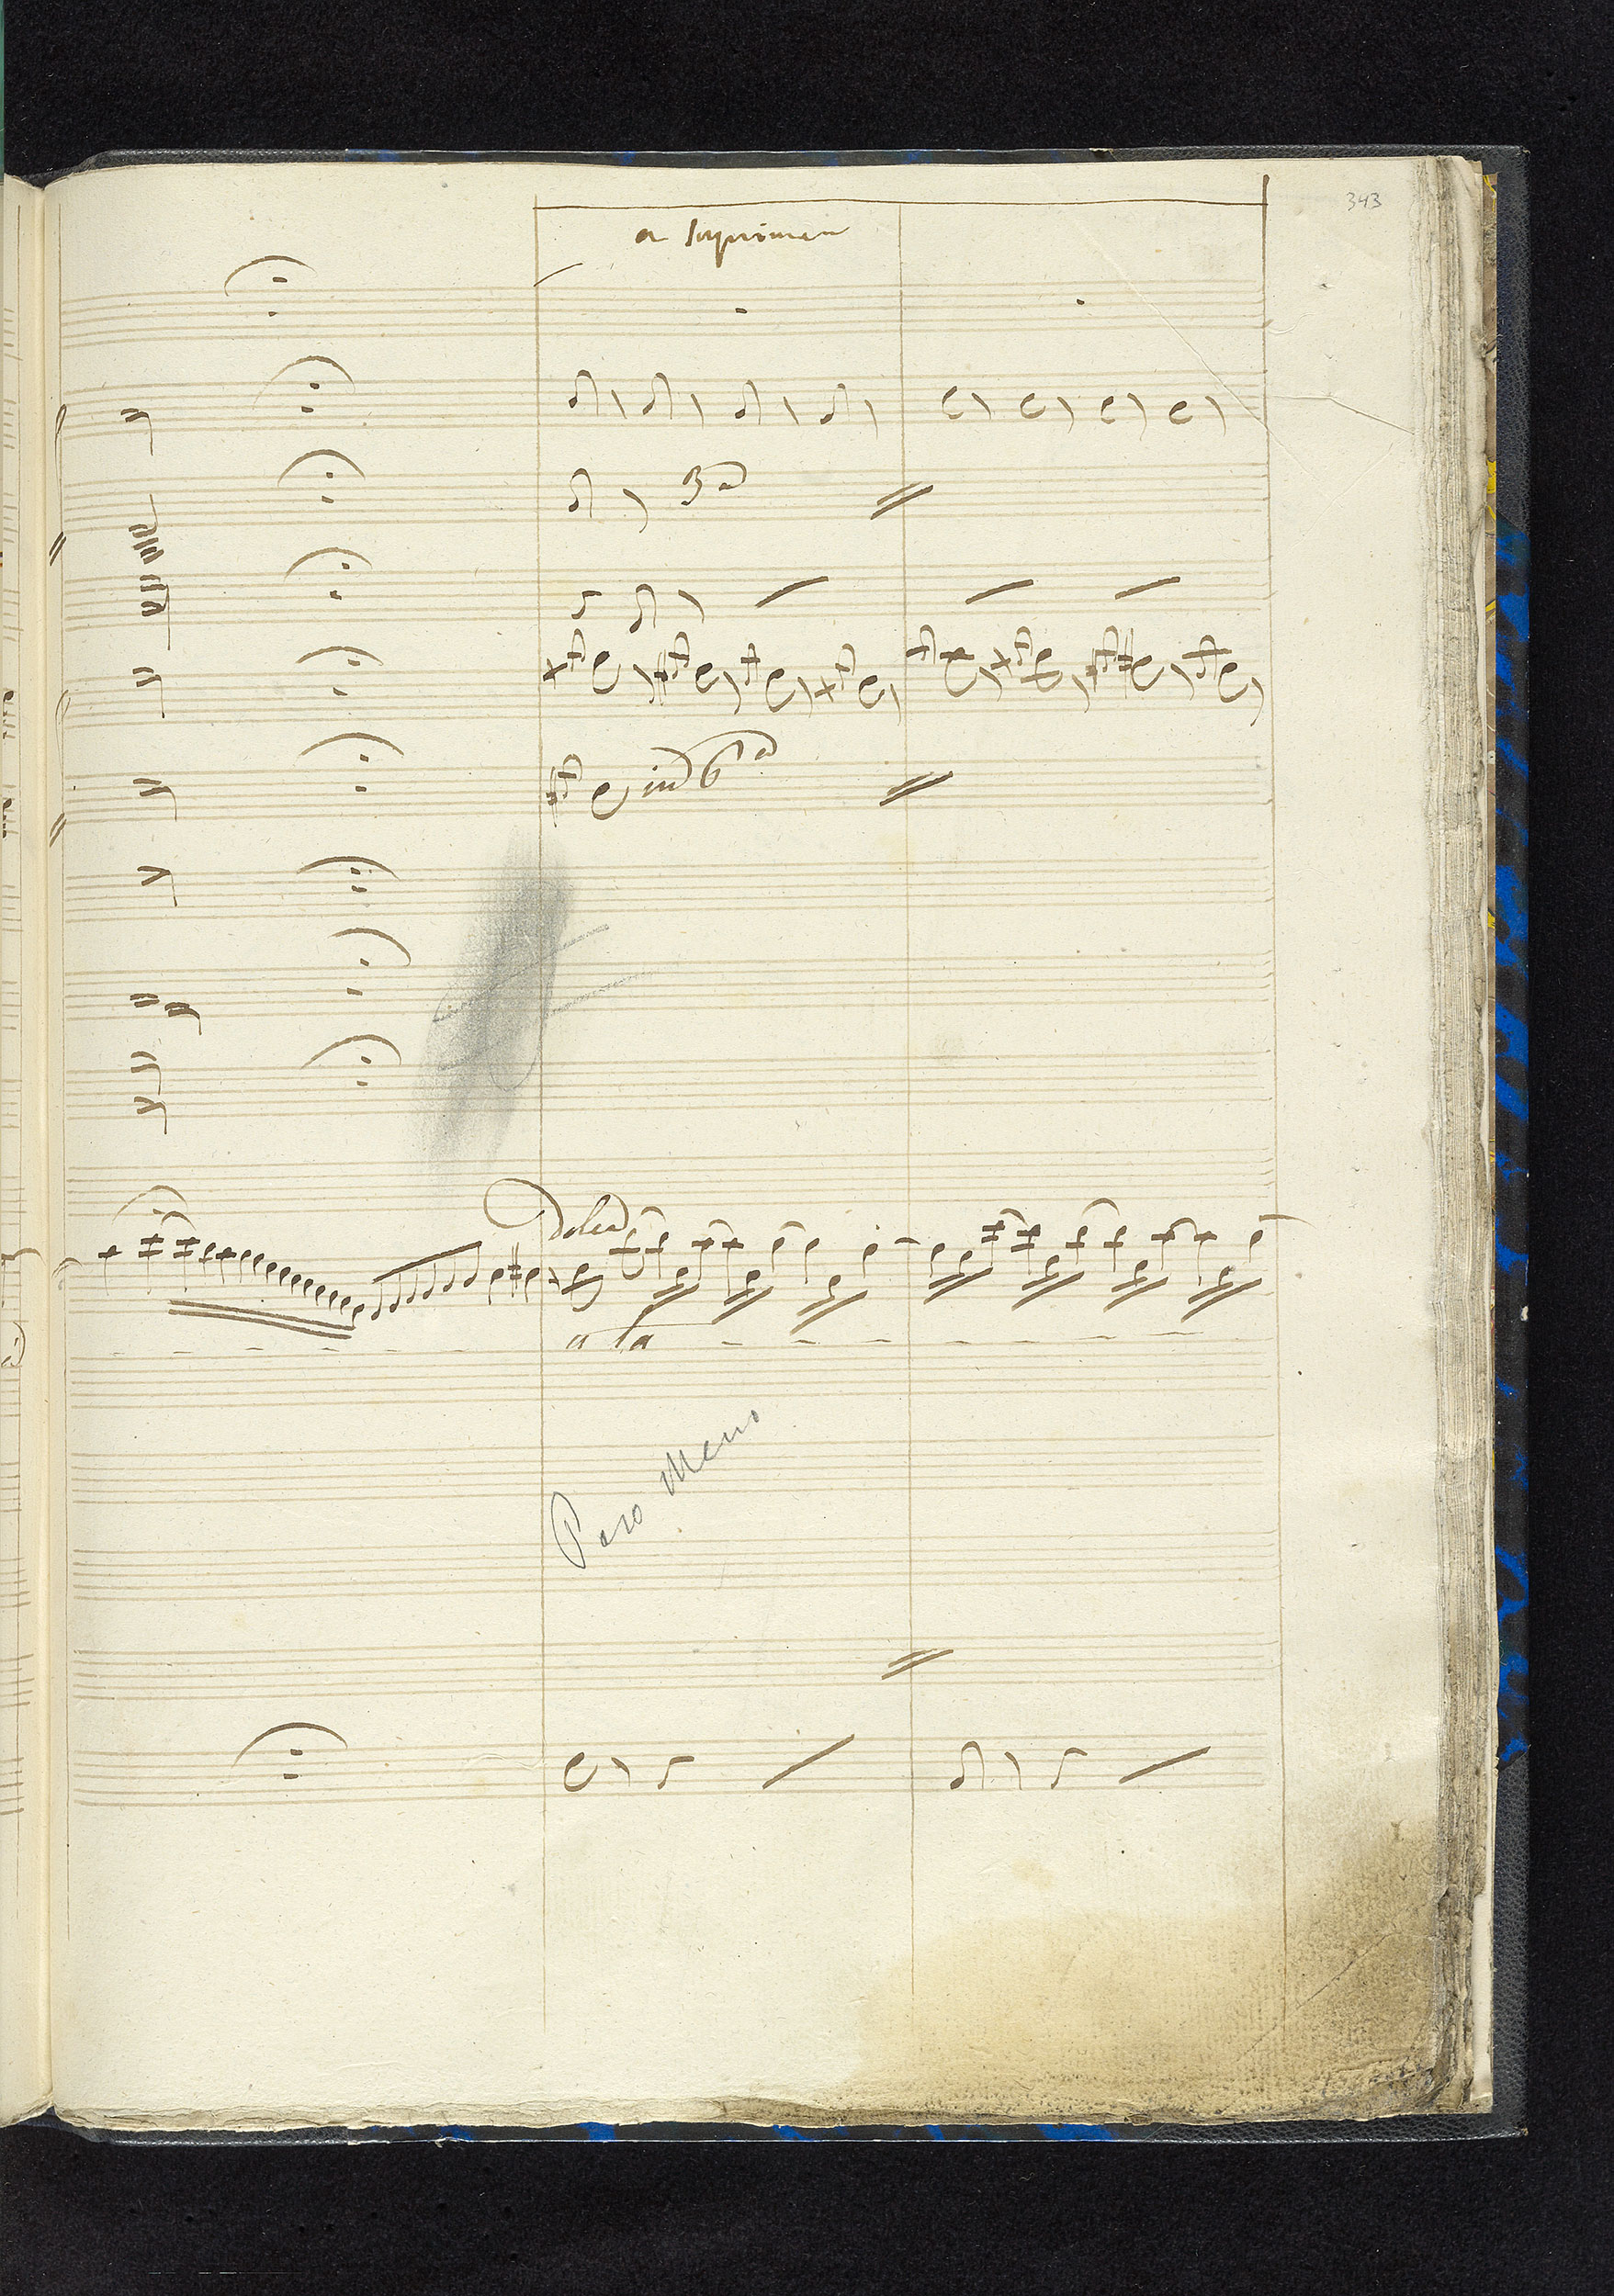 343
a Supprimer
3a
in 6a
Dolce
a la
Poco Meno